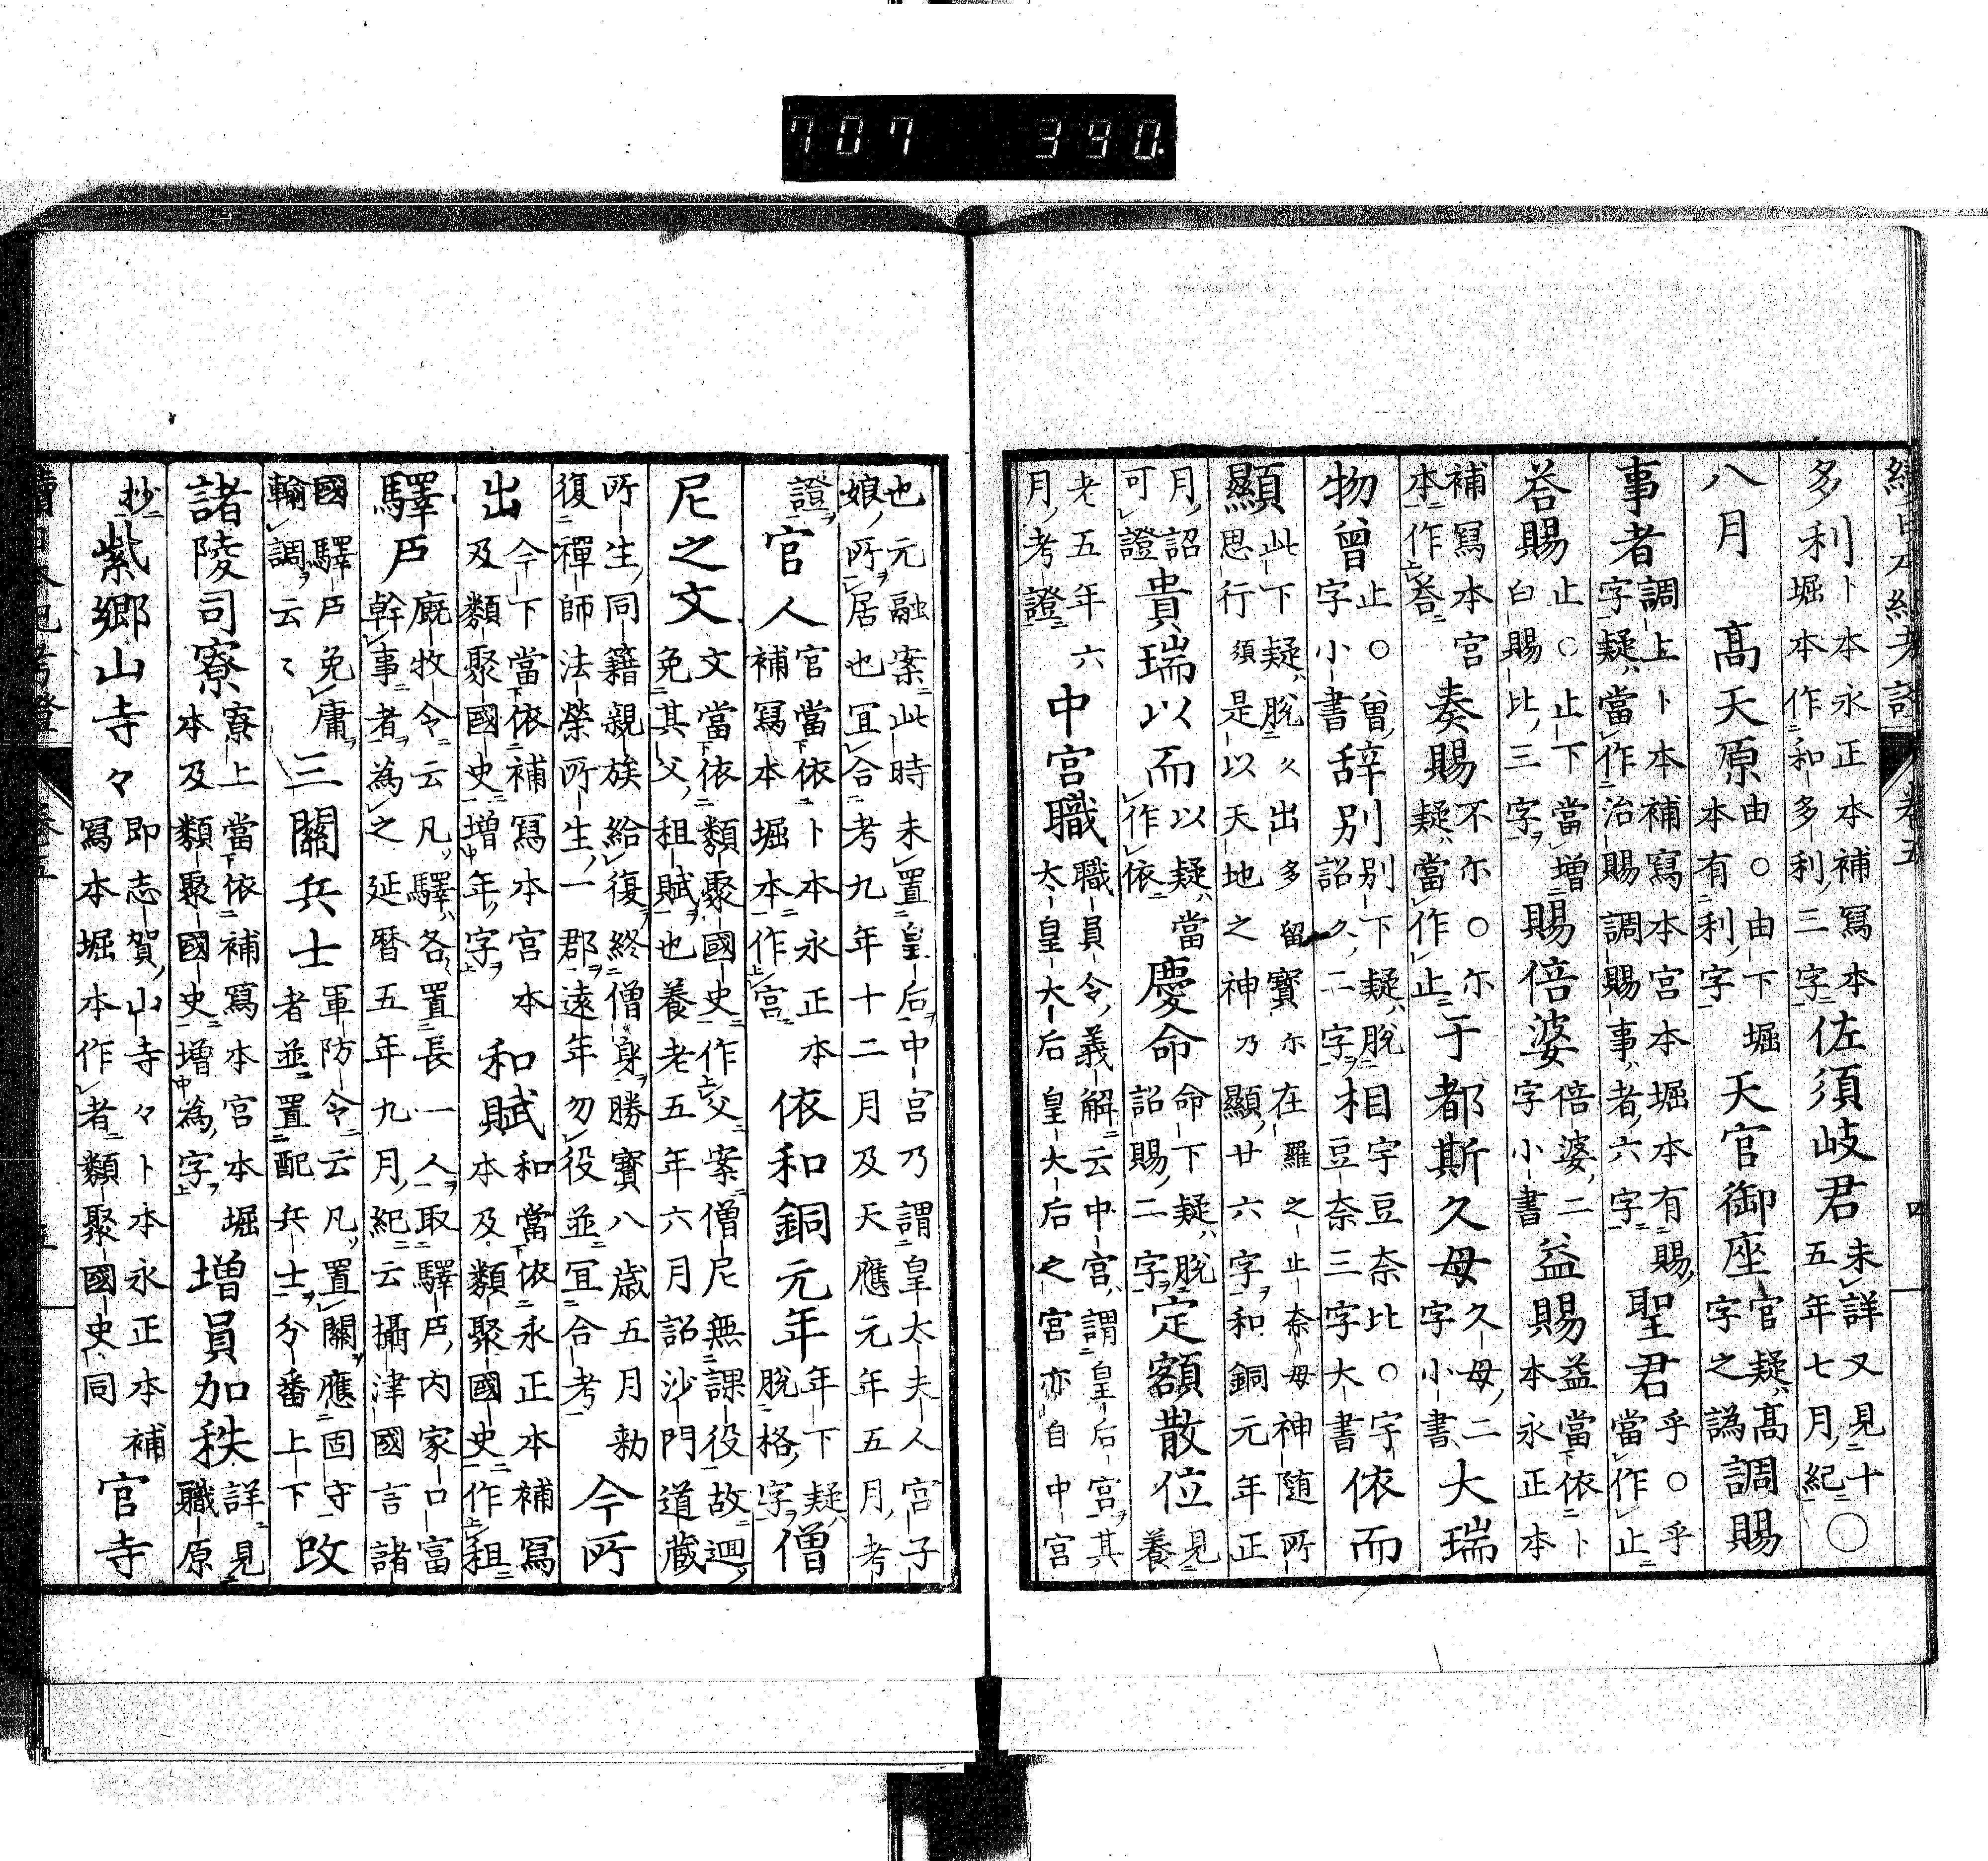 707 390.
續日本紀考證 卷五 四
多利卜本永正本補寫本堀本作和多利三字佐須岐君未詳又見十五年七月紀○
八月 高天原由○由下堀本有利字天官御座官疑高字之譌調賜
事者調上卜本補寫本宮本堀本有賜字疑當作治賜調賜事者六字聖君乎○乎當作止
荅賜止○止下當增白賜比三字賜倍婆倍婆二字小書益賜益當依卜本永正本
補寫本宮本作荅奏賜不尓○尓疑當作止于都斯久母久母二字小書大瑞
物曾止○曾字小書辞別別下疑脫詔久二字相宇豆奈比○宇豆奈三字大書依而
顯此下疑脫久出多留寶尓在羅之止奈母神随所思行須是以天地之神乃顯廿六字和銅元年正
月詔可證貴瑞以而以疑當作依慶命命下疑脫詔賜二字定額散位見養
老五年六月考證中宮職職員令義解云中宮謂皇后宮其太皇大后皇大后之宮亦自中宮
也元融案此時未置皇后中宮乃謂皇太夫人宮子娘所居也宜合考九年十二月及天應元年五月考
證官人官當依卜本永正本補寫本堀本作宮依和銅元年年下疑脫格字僧
尼之文文當依類聚國史作父案僧尼無課役故迴免其父租賦也養老五年六月詔沙門道藏
所生同籍親族給復終僧身勝寶八歲五月勅復禪師法榮所生一郡遠年勿役並宜合考今所
出今下當依補寫本宮本及類聚國史增年字和賦和當依永正本補寫本及類聚國史作租
驛戶廐牧令云凡驛各置長一人取驛戶內家口富幹事者為之延曆五年九月紀云攝津國言諸
國驛戶免庸輸調云々三關兵士軍防令云凡置關應固守者並置配兵士分番上下改
諸陵司寮寮上當依補寫本宮本堀本及類聚國史增為字增員加秩詳見職原
抄紫鄉山寺々即志賀山寺々卜本永正本補寫本堀本作者類聚國史同官寺
續日本紀考證 卷五 五